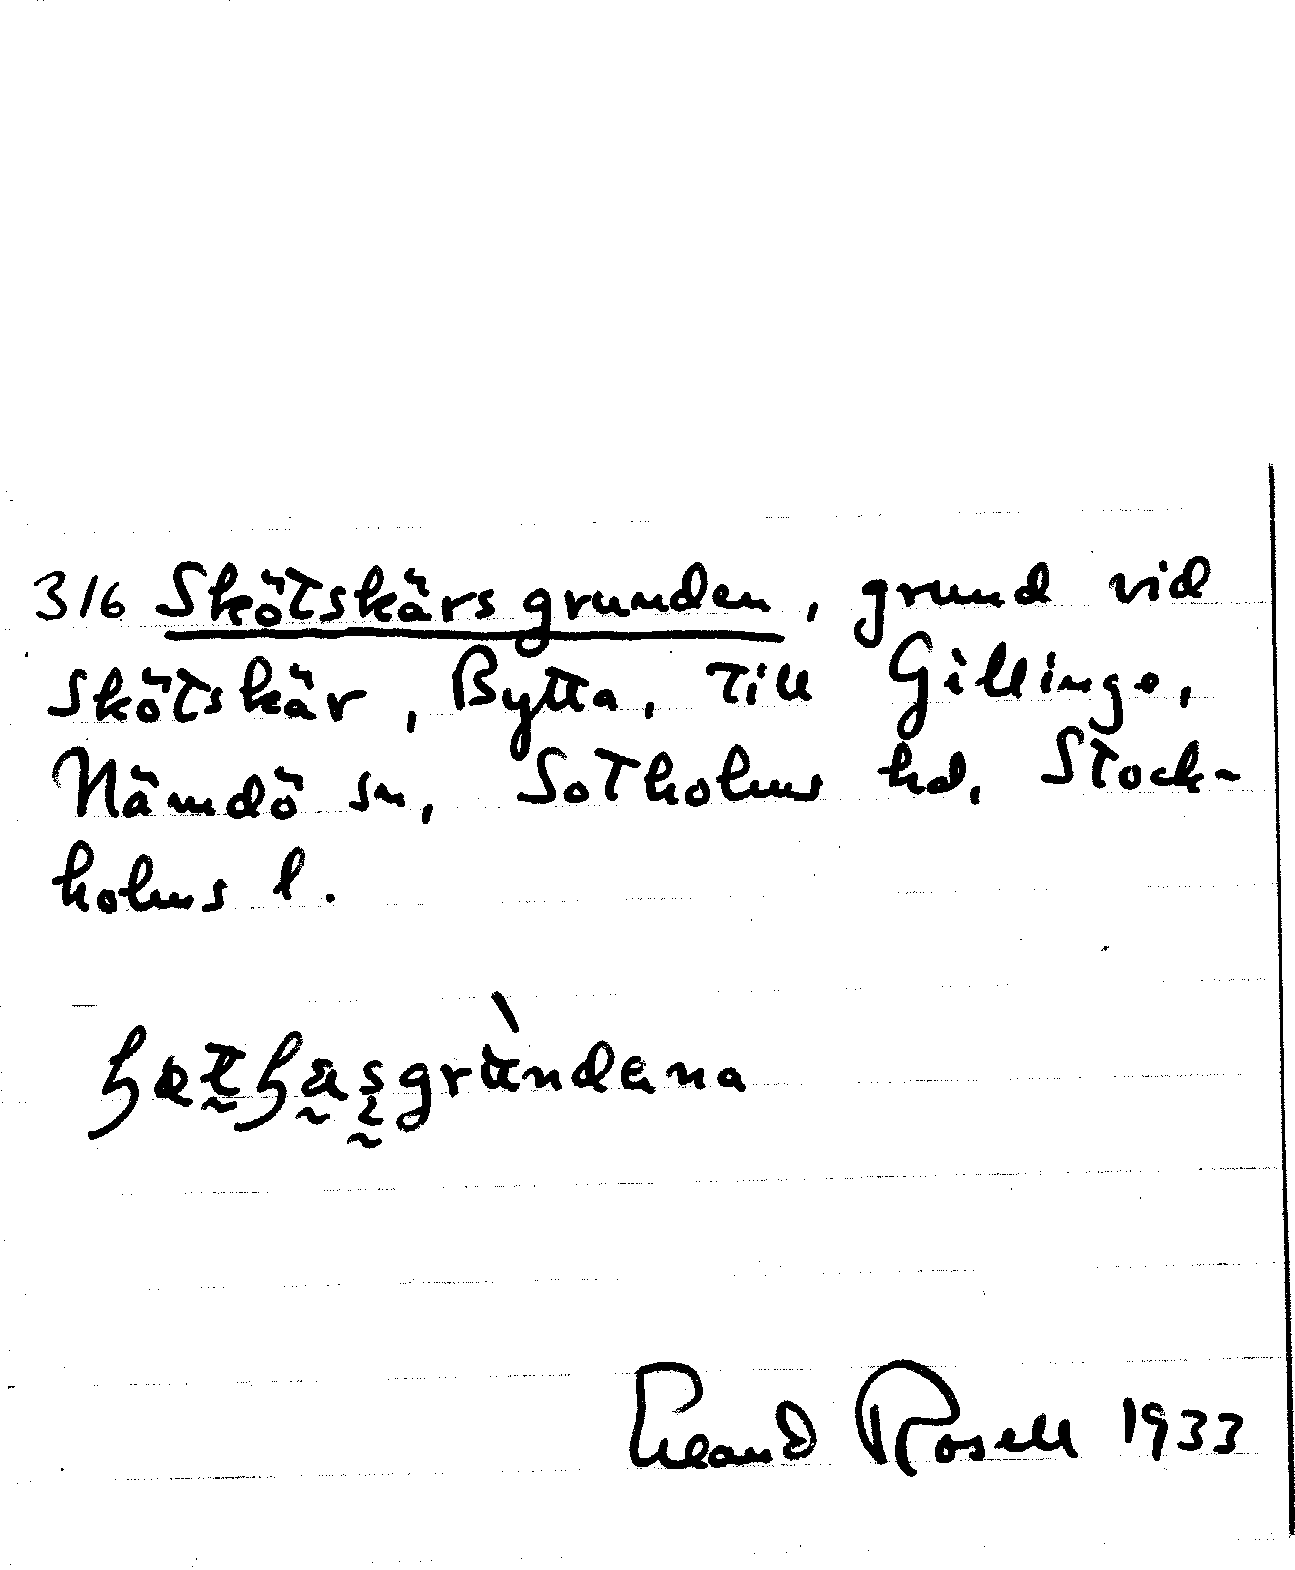 316 Skötskärsgrunden, grund vid
Skötskär, Bytta, till Gillinge,
Nämdö sn, Sotholms hd, Stock-
holms l.
Erland Rosell 1933